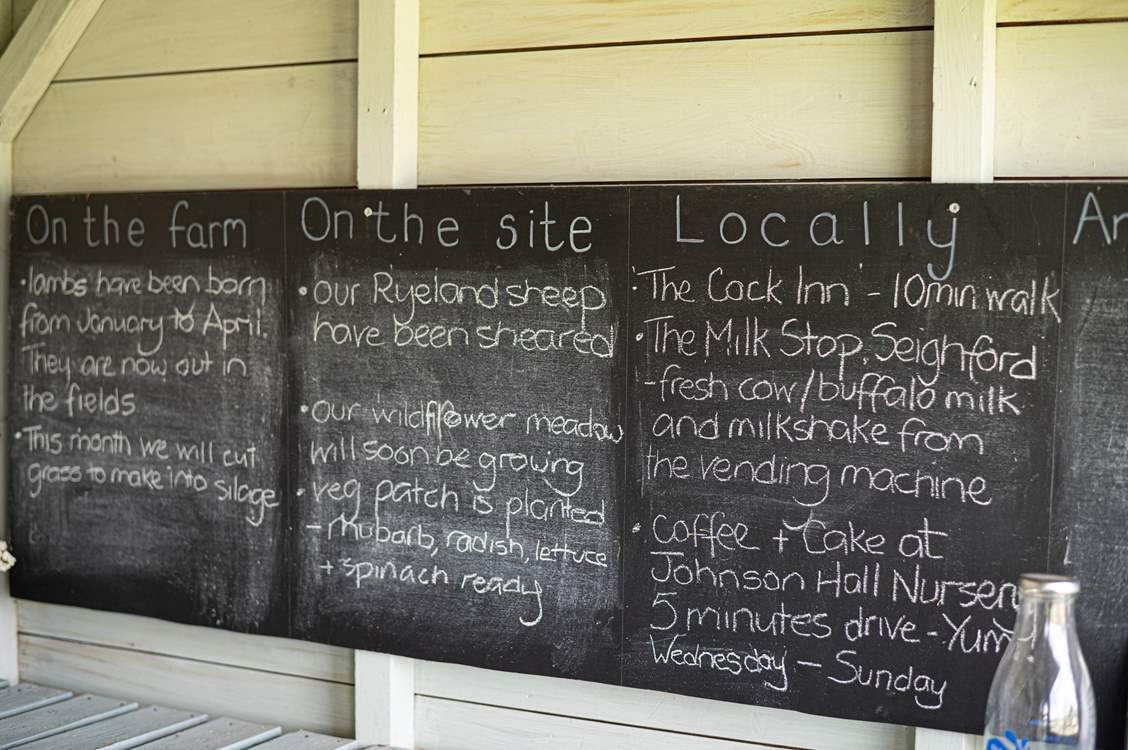 On the farm
• lambs have been born
from January to April.
They are now out in
the fields
• This month we will cut
grass to make into silage
On the site
• our Ryeland sheep
have been sheared
• our wildflower meadow
will soon be growing
• veg patch is planted
- rhubarb, radish, lettuce
+ spinach ready
Locally
• The Cock Inn - 10min walk
• The Milk Stop, Seighford
- fresh cow/buffalo milk
and milkshake from
the vending machine
• coffee + cake at
Johnson Hall Nursery
5 minutes drive - Yum
Wednesday - Sunday